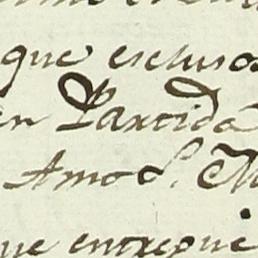 que esclusos
en Partida
Amo S. M
que entregue